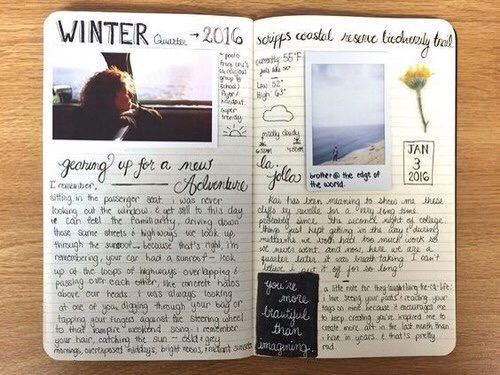 WINTER Quarter → 2016
gearing up for a new
Adventure
I remember,
sitting in the passenger seat. i was never
looking out the window & yet still to this day
i can feel the familiarity, driving down
those same streets & highways. we look up,
through the sunroof... because that's right, i'm
remembering, your car had a sunroof - look
up at the loops of highways overlapping &
passing over each other, like concrete halos
above our heads. i was always looking
at one of you, playing through your bag or
tapping your fingers against the steering wheel
to that vampire weekend song. i remember
your hair, catching the sun - cold & grey
mornings, overexposed middays, bright rooms, instant sunsets
scripps coastal reserve biodiversity trail
currently 55°F
feels like 55°
Low: 52°
High: 63°
partly cloudy
la
jolla
brother @ the edge of
the world.
JAN
3
2016
Kai has been meaning to show me these
cliffs by scripps for a very long time
since the second night of college.
things just kept getting in the way & during
midterms we both had too much work so
we never went. and now, here we are a
quarter later. it was breath taking. I can't
believe i put it off for so long!
you're
more
beautiful
than
imagining.
a little note for
i love seeing your posts & reading your
tags on mine because it encourages me
to keep creating. you've inspired me to
create more art in the last month than
i have in years. & that's pretty
rad.